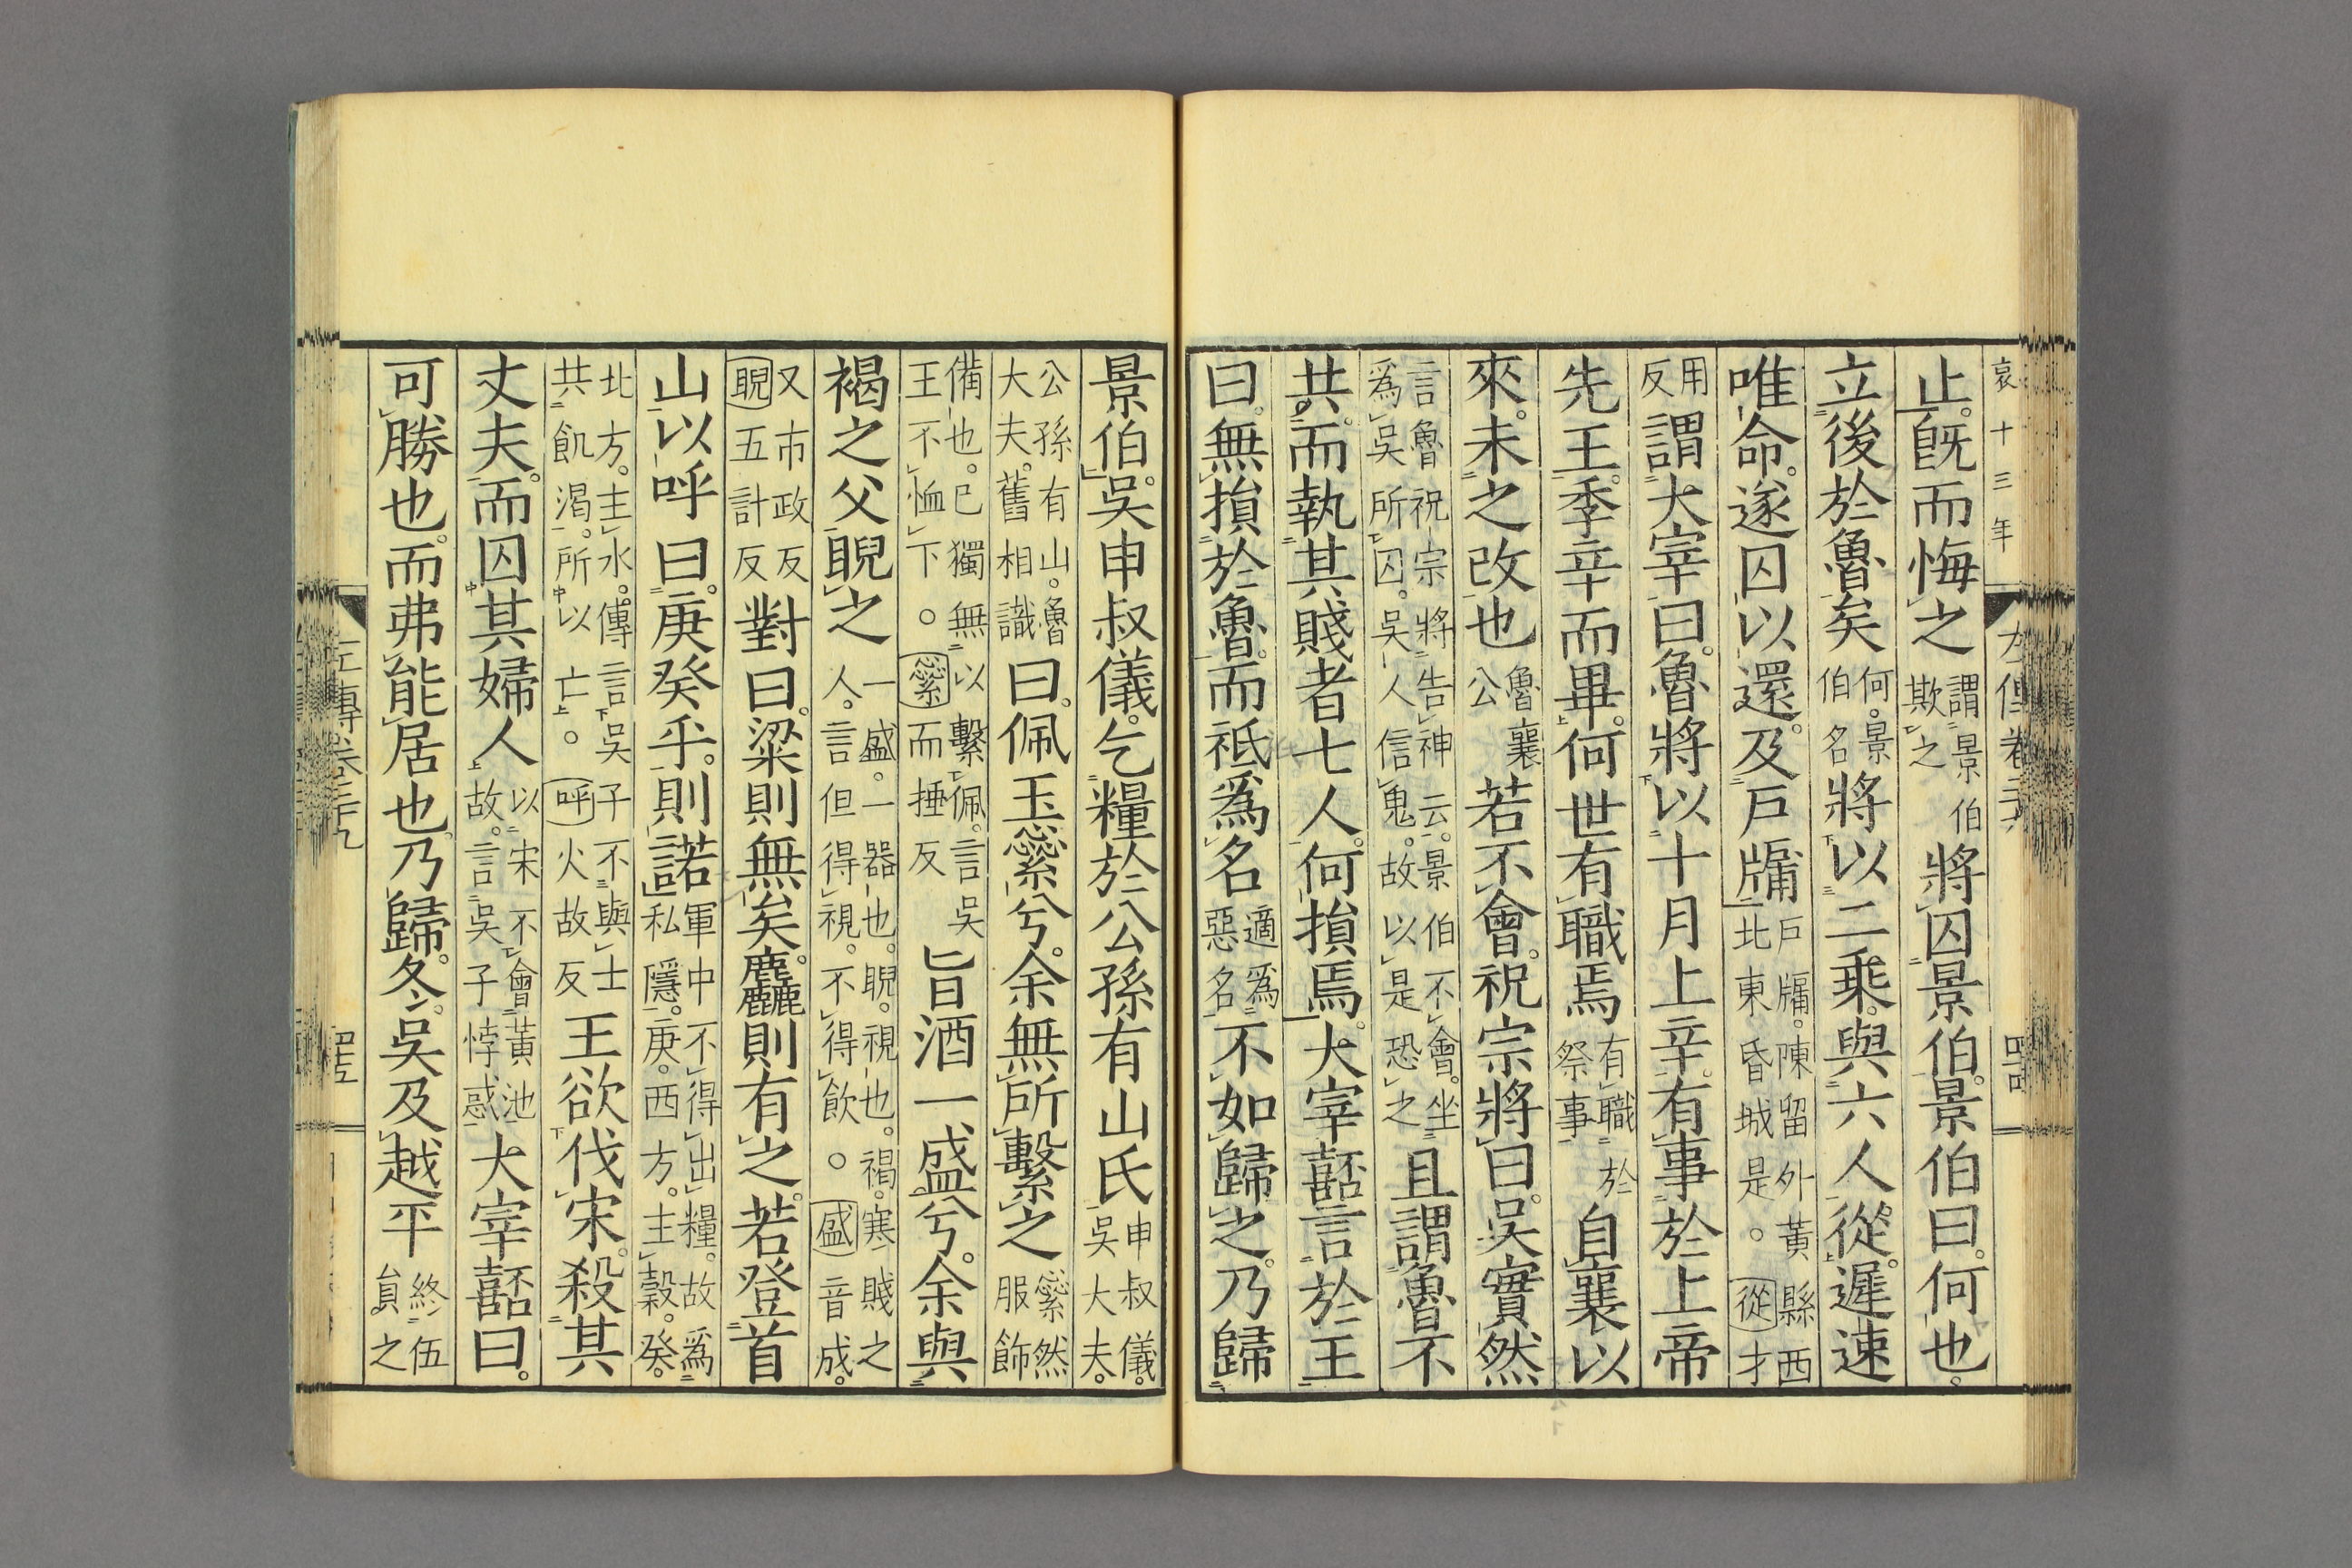 哀十三年
止。既而悔之謂景伯欺之將囚景伯。景伯曰。何也。
立後於魯矣何。景伯名將以二乘。與六人從。遲速
唯命。遂囚以還。及戶牖戶牖。陳留外黃縣西北東昏城是。○從才
用反謂大宰曰。魯將以十月上辛。有事於上帝
先王。季辛而畢。何世有職焉有職於祭事自襄以
來。未之改也魯襄公若不會。祝宗將曰。吳實然
言魯祝宗將告神云。景伯不會。坐爲吳所囚。吳人信鬼。故以是恐之且謂魯不
共。而執其賤者七人。何損焉。大宰嚭言於王
曰。無損於魯。而祗爲名適爲惡名不如歸之。乃歸
景伯。吳申叔儀。乞糧於公孫有山氏申叔儀。吳大夫。
公孫有山。魯大夫。舊相識曰。佩玉繠兮。余無所繫之繠然服飾
備也。已獨無以繫佩。言吳王不恤下。○繠而捶反旨酒一盛兮。余與
褐之父睨之一盛。一器也。睨。視也。褐。寒賤之人。言但得視。不得飲。○盛音成。
又市政反睨五計反對曰。粱則無矣。麤則有之。若登首
山以呼曰。庚癸乎。則諾軍中不得出糧。故爲私隱。庚。西方。主穀。癸。
北方。主水。傳言吳子不與士共飢渴。所以亡。○呼火故反王欲伐宋。殺其
丈夫。而囚其婦人以宋不會黃池故。言吳子悖惑大宰嚭曰。
可勝也。而弗能居也。乃歸。冬。吳及越平終伍員之
左傳卷三十九